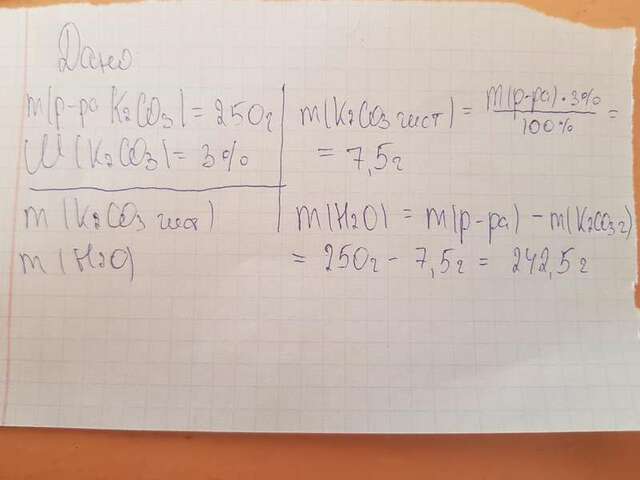 Дано
m(р-ра K2CO3) = 250г
W(K2CO3) = 3%
m(K2CO3 чист)
m(H2O)
m(K2CO3 чист) = m(р-ра)·3%/100% =
= 7,5г
m(H2O) = m(р-ра) - m(K2CO3г)
= 250г - 7,5г = 242,5г